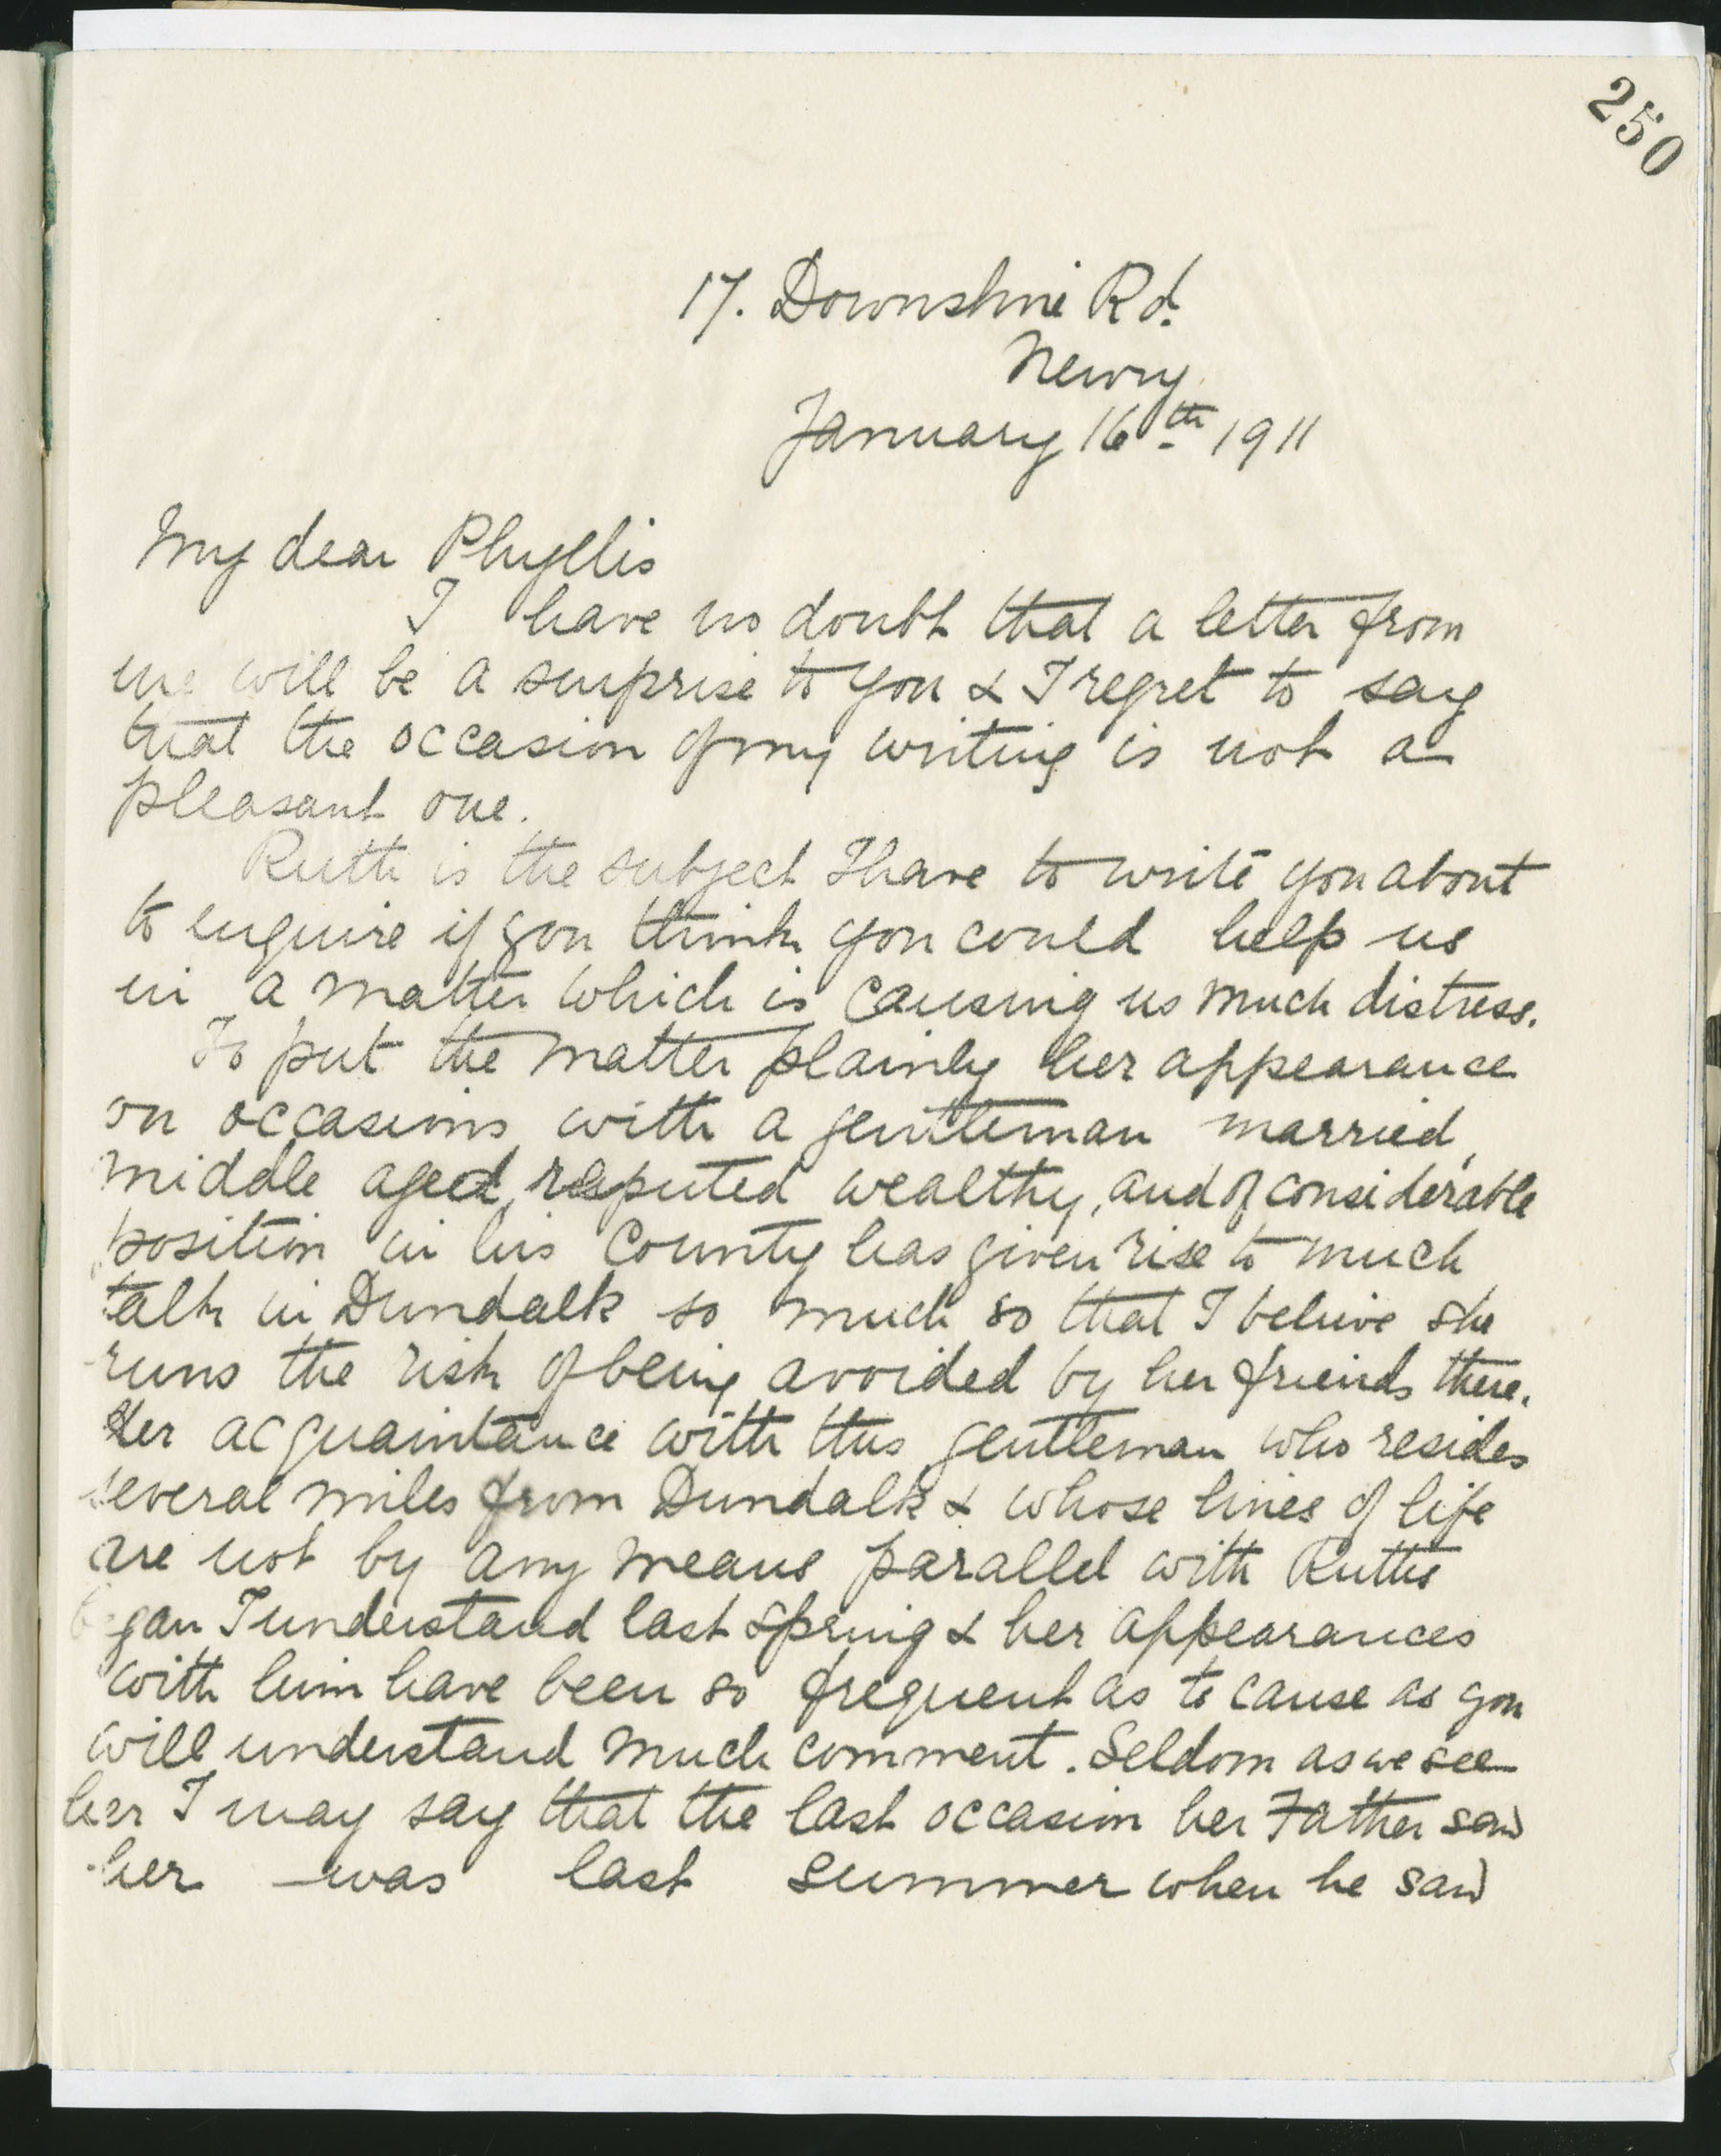 250
17. Downshire Rd.
Newry
January 16th 1911
My dear Phyllis
I have no doubt that a letter from
me will be a surprise to you & I regret to say
that the occasion of my writing is not a
pleasant one.
Ruth is the subject I have to write you about
to enquire if you think you could help us
in a matter which is causing us much distress.
To put the matter plainly her appearance
on occasions with a gentleman married,
middle aged, reputed wealthy, and of considerable
position in his County has given rise to much
talk in Dundalk so much so that I believe she
runs the risk of being avoided by her friends there.
Her acquaintance with this gentleman who resides
several miles from Dundalk & whose lines of life
are not by any means parallel with Ruths
began I understand last spring & her appearances
with him have been so frequent as to cause as you
will understand much comment. Seldom as we see
her I may say that the last occasion her Father saw
her was last summer when he saw